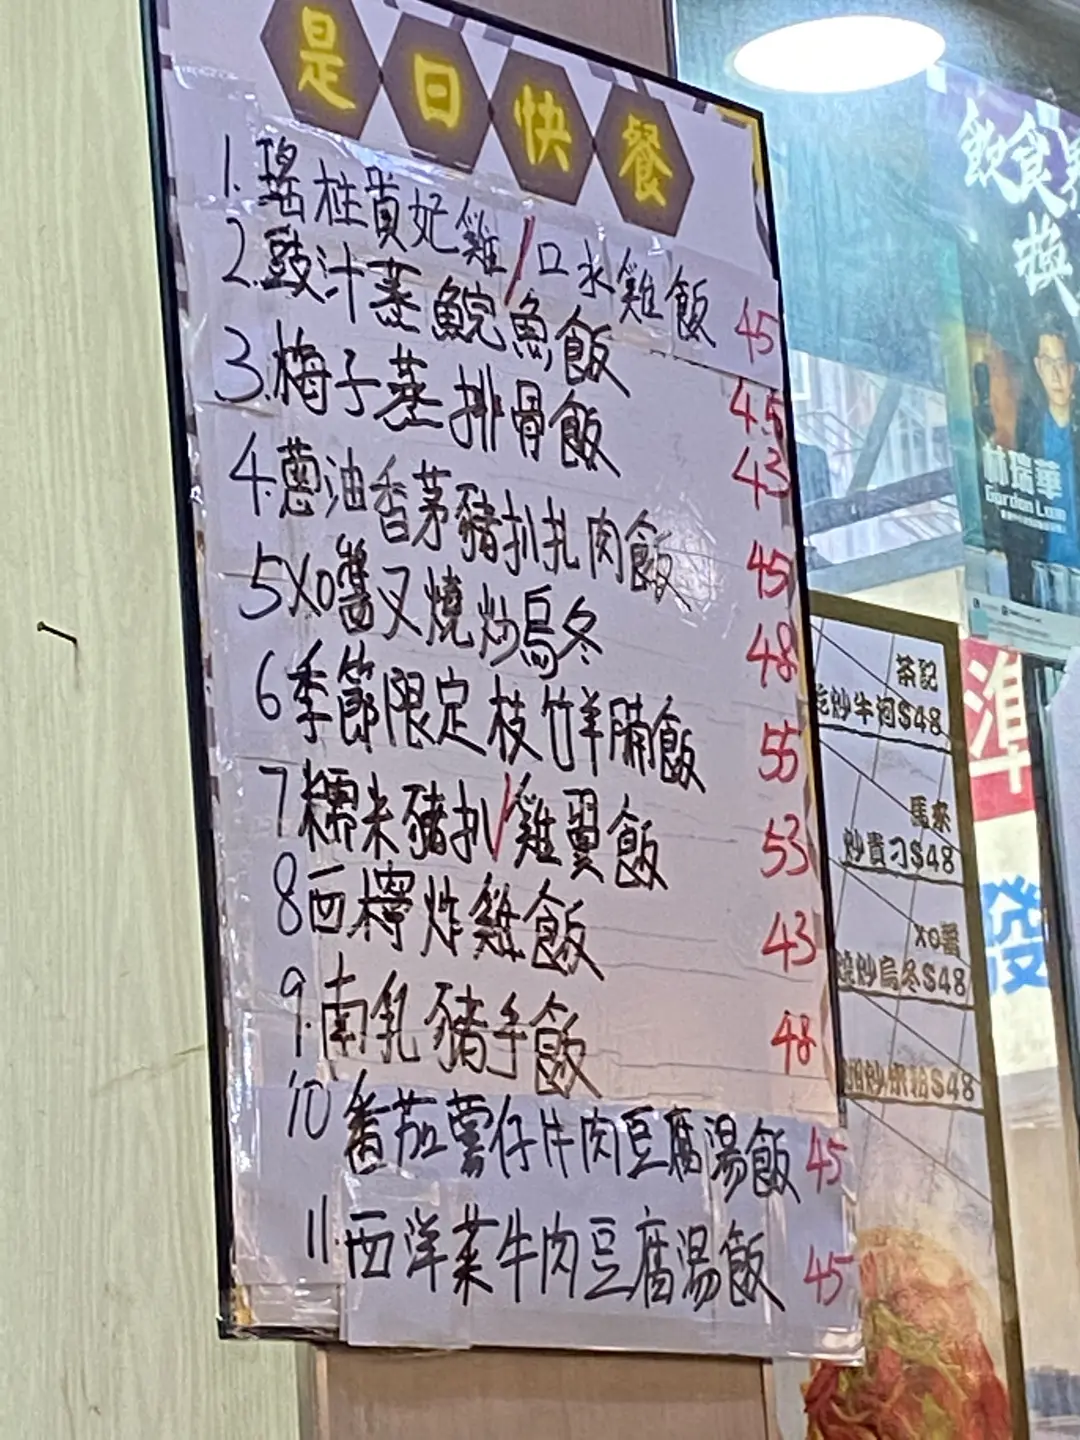 是日快餐
1. 瑤柱貴妃雞/口水雞飯 45
2. 豉汁蒸鯇魚飯 45
3. 梅子蒸排骨飯 43
4. 蔥油香茅豬扒扎肉飯 45
5 XO醬叉燒炒烏冬 48
6 季節限定枝竹羊腩飯 55
7 糯米豬扒/雞翼飯 53
8 西檸炸雞飯 43
9. 南乳豬手飯 48
10 番茄薯仔牛肉豆腐湯飯 45
11. 西洋菜牛肉豆腐湯飯 45
飲食
林瑞華
Gordon Lam
準
發
茶記
炒牛河$48
馬來
炒貴刁$48
XO醬
燒炒烏冬$48
$48